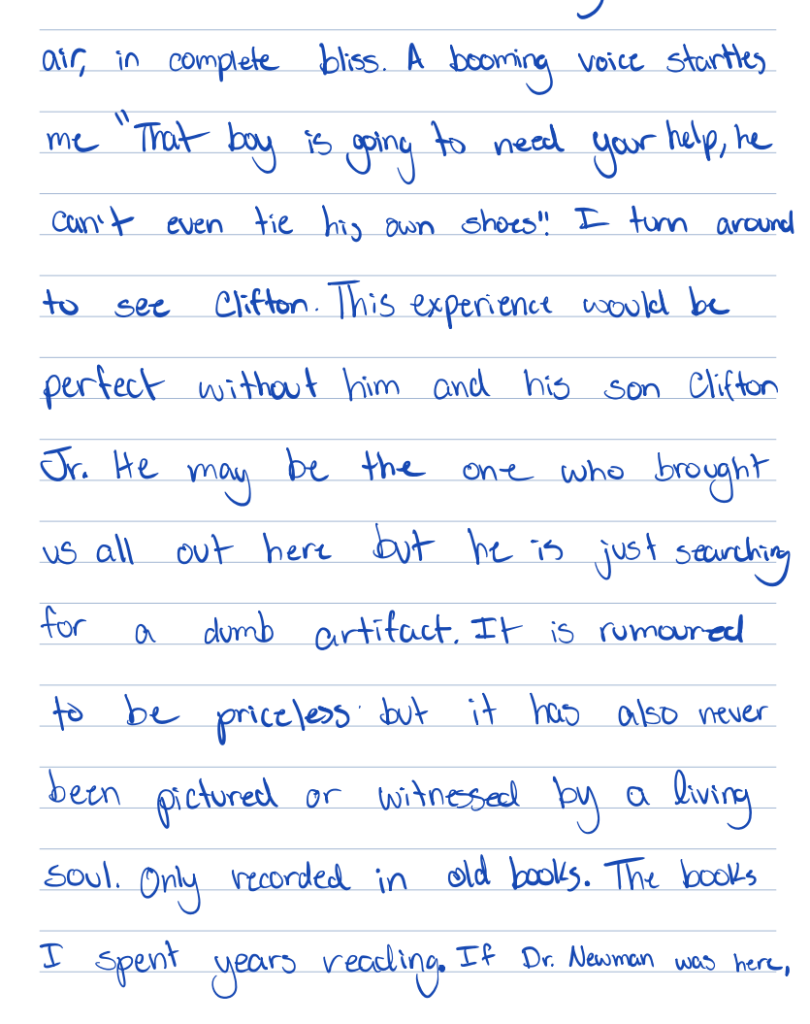 air, in complete bliss. A booming voice startles
me "That boy is going to need your help, he
can't even tie his own shoes". I turn around
to see Clifton. This experience would be
perfect without him and his son Clifton
Jr. He may be the one who brought
us all out here but he is just searching
for a dumb artifact. It is rumoured
to be priceless but it has also never
been pictured or witnessed by a living
soul. Only recorded in old books. The books
I spent years reading. If Dr. Newman was here,